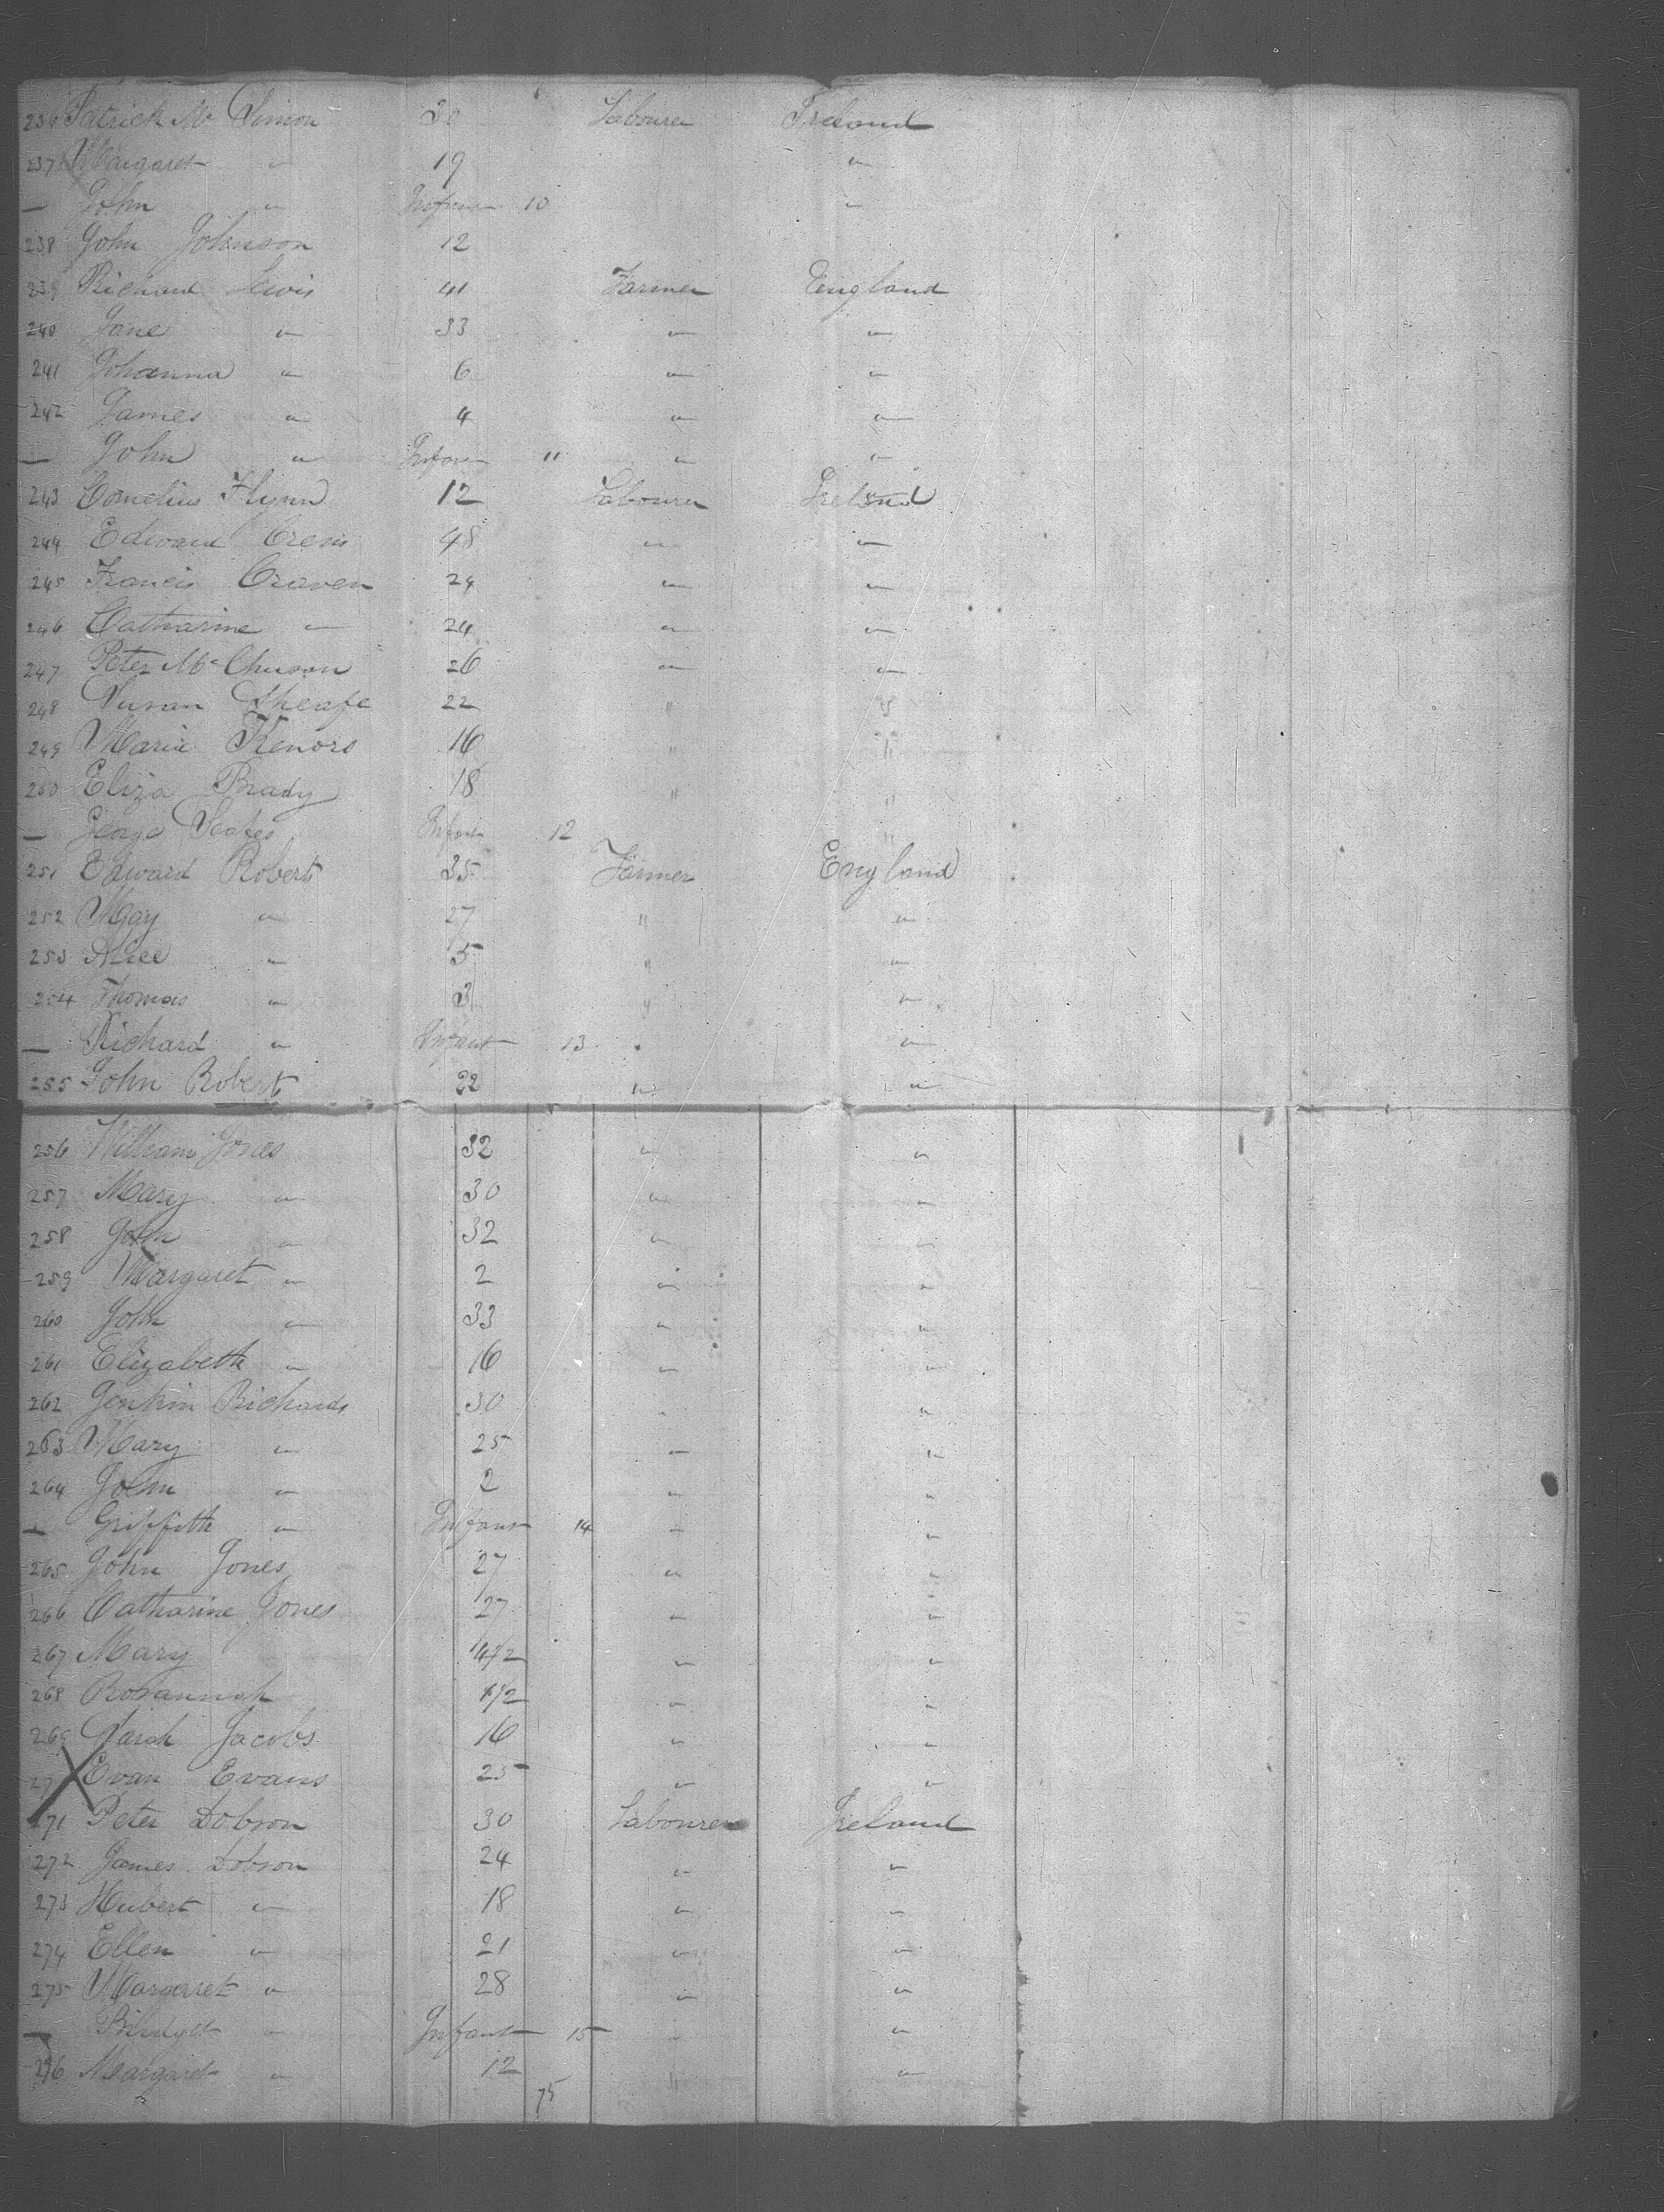 236 Patrick Mc Simon 30 Labourer Ireland
237 Margaret " 19 "
— John " Infant 10 "
238 John Johnson 12
239 Richard Lewis 41 Farmer England
240 Jane " 33 " "
241 Johanna " 6 " "
242 James " 4 " "
— John " Infant 11 " "
243 Cornelius Flynn 12 Labourer Ireland
244 Edward 48 " "
245 Francis Craven 24 " "
246 Catharine " 24 " "
247 Peter Mc 26 " "
248 Susan Sheafe 22 " "
249 Maria Kenors 16 " "
250 Eliza Brady 18 " "
— George Infant 12 "
251 Edward Roberts 35 Farmer England
252 May " 27 " "
253 Alice " 5 " "
254 Thomas " 3 " "
— Richard " Infant 13 "
255 John Robert 22 " "
256 William Jones 32 " "
257 Mary " 30 " "
258 John " 32 " "
259 Margaret " 2 " "
260 John " 33 " "
261 Elizabeth " 16 " "
262 Jenkin Richards 30 " "
263 Mary " 25 " "
264 John " 2 " "
— Griffith " Infant 14 " "
265 John Jones 27 " "
266 Catharine Jones 27 " "
267 Mary " "
268 Rosannah " "
269 Sarah Jacobs 16 " "
27 Evan Evans 25 " "
271 Peter Dobson 30 Labourer Ireland
272 James Dobson 24 " "
273 Hubert " 18 " "
274 Ellen " 21 " "
275 Margaret " 28 " "
— Bridget " Infant 15 " "
276 Margaret " 12 " "
75